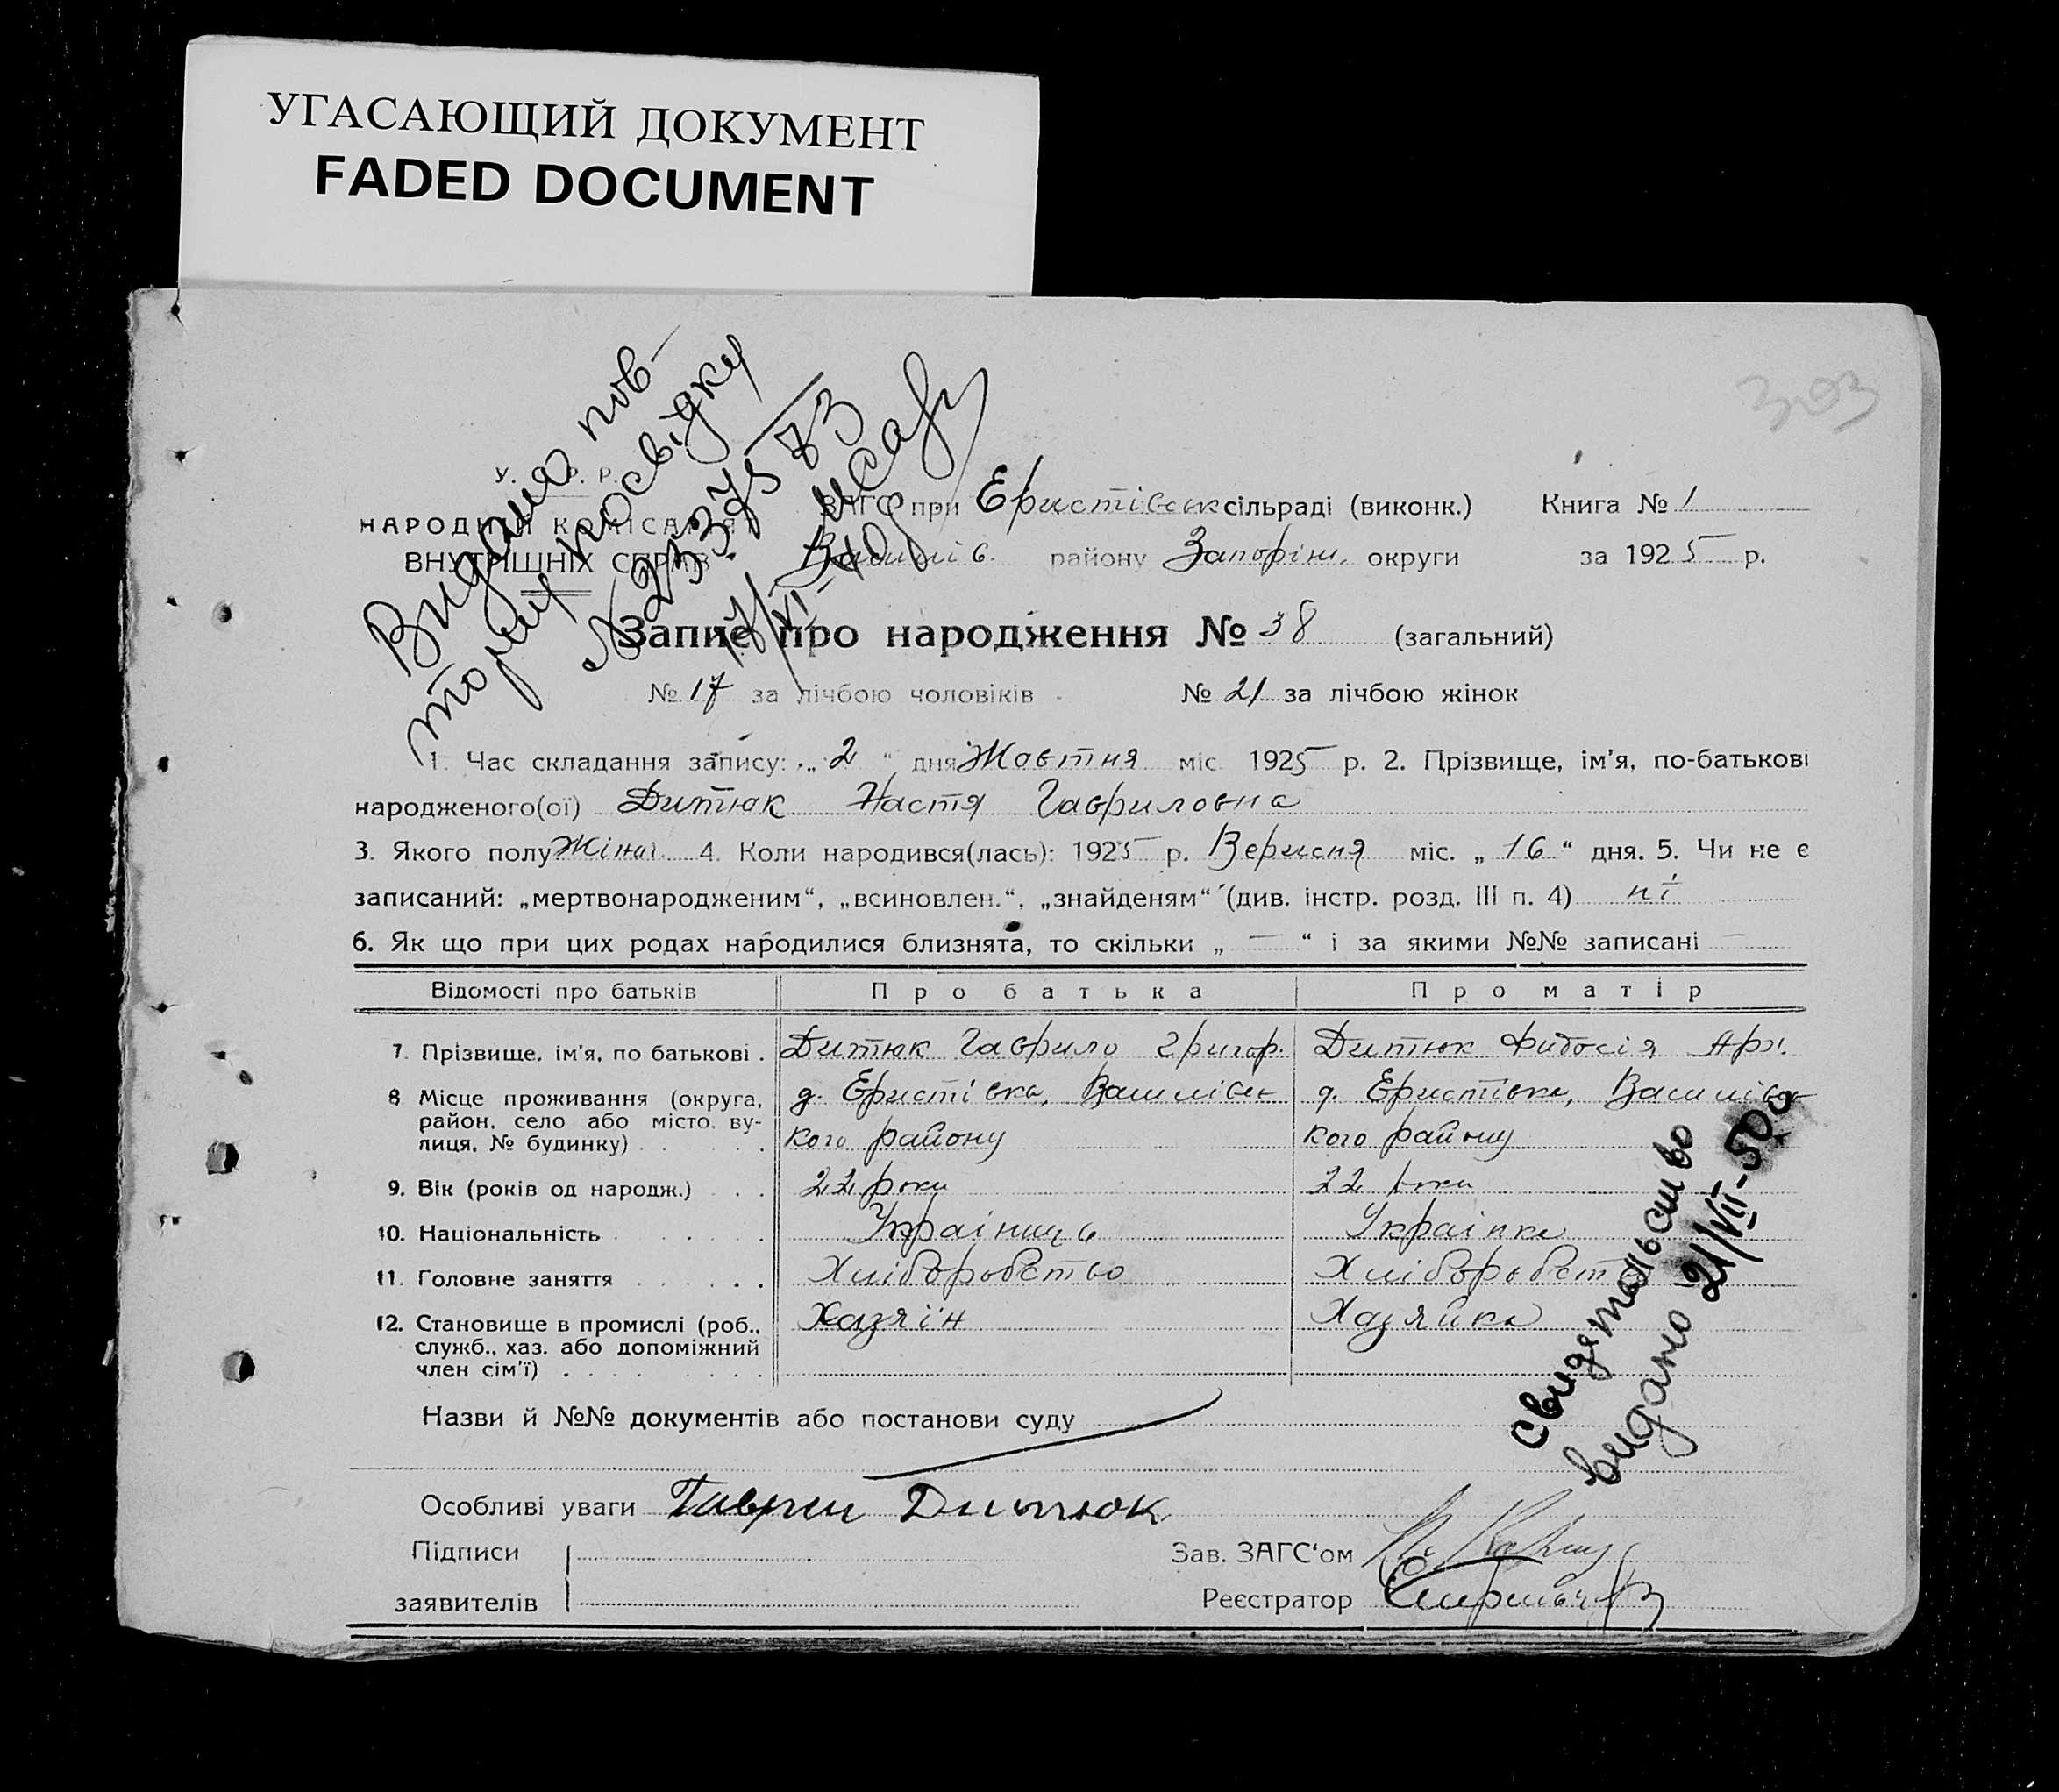 УГАСАЮЩИЙ ДОКУМЕНТ
FADED DOCUMENT
303
Видано пов-
торну посвідку
У. Р. Р.
НАРОДНИЙ КОМІСАРІЯТ
ВНУТРІШНІХ СПРАВ
ЗАГС при Еристівськ сільраді (виконк.) Книга № 1
району Запоріж. округи за 1925 р.
Запис про народження № 38 (загальний)
№ 17 за лічбою чоловіків № 21 за лічбою жінок
1. Час складання запису: „2“ дня Жовтня міс. 1925 р. 2. Прізвище, ім'я, по-батькові
народженого(ої) Дитюк Настя Гавриловна
3. Якого полу Жіноч. 4. Коли народився(лась): 1925 р. Вересня міс. „16“ дня. 5. Чи не є
записаний: „мертвонародженим“, „всиновлен.“, „знайденям“ (див. інстр. розд. III п. 4) ні
6. Як що при цих родах народилися близнята, то скільки „—“ і за якими №№ записані —
Відомості про батьків Про батька Про матір
7. Прізвище, ім'я, по батькові . Дитюк Гаврило Григор. Дитюк Фидосія
8. Місце проживання (округа, д. Еристівка, Василівсь д. Еристівка, Василівсь
район, село або місто, ву- кого району кого району
лиця, № будинку)
9. Вік (років од народж.) . . . 22 роки 22 роки
10. Національність Українець Українка
11. Головне заняття Хліборобство Хліборобст
12. Становище в промислі (роб., Хазяїн Хазяйка
служб., хаз. або допоміжний
член сім'ї)
свидетельство
видано 21/VII-50
Назви й №№ документів або постанови суду
Особливі уваги Гаврил Дитюк
Підписи
заявителів
Зав. ЗАГС'ом
Реєстратор